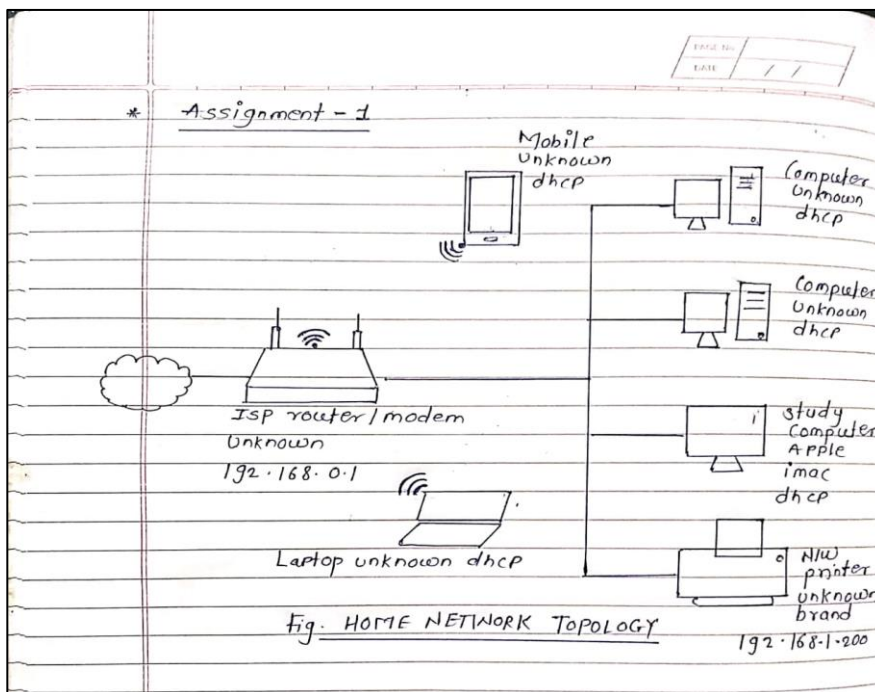 PAGE No.
DATE / /
* Assignment - 1
Mobile
unknown
dhcp
Computer
unknown
dhcp
Computer
unknown
dhcp
ISP router/modem
unknown
192.168.0.1
i study
Computer
Apple
imac
dhcp
Laptop unknown dhcp
N/W
printer
unknown
brand
192.168.1.200
Fig. HOME NETWORK TOPOLOGY